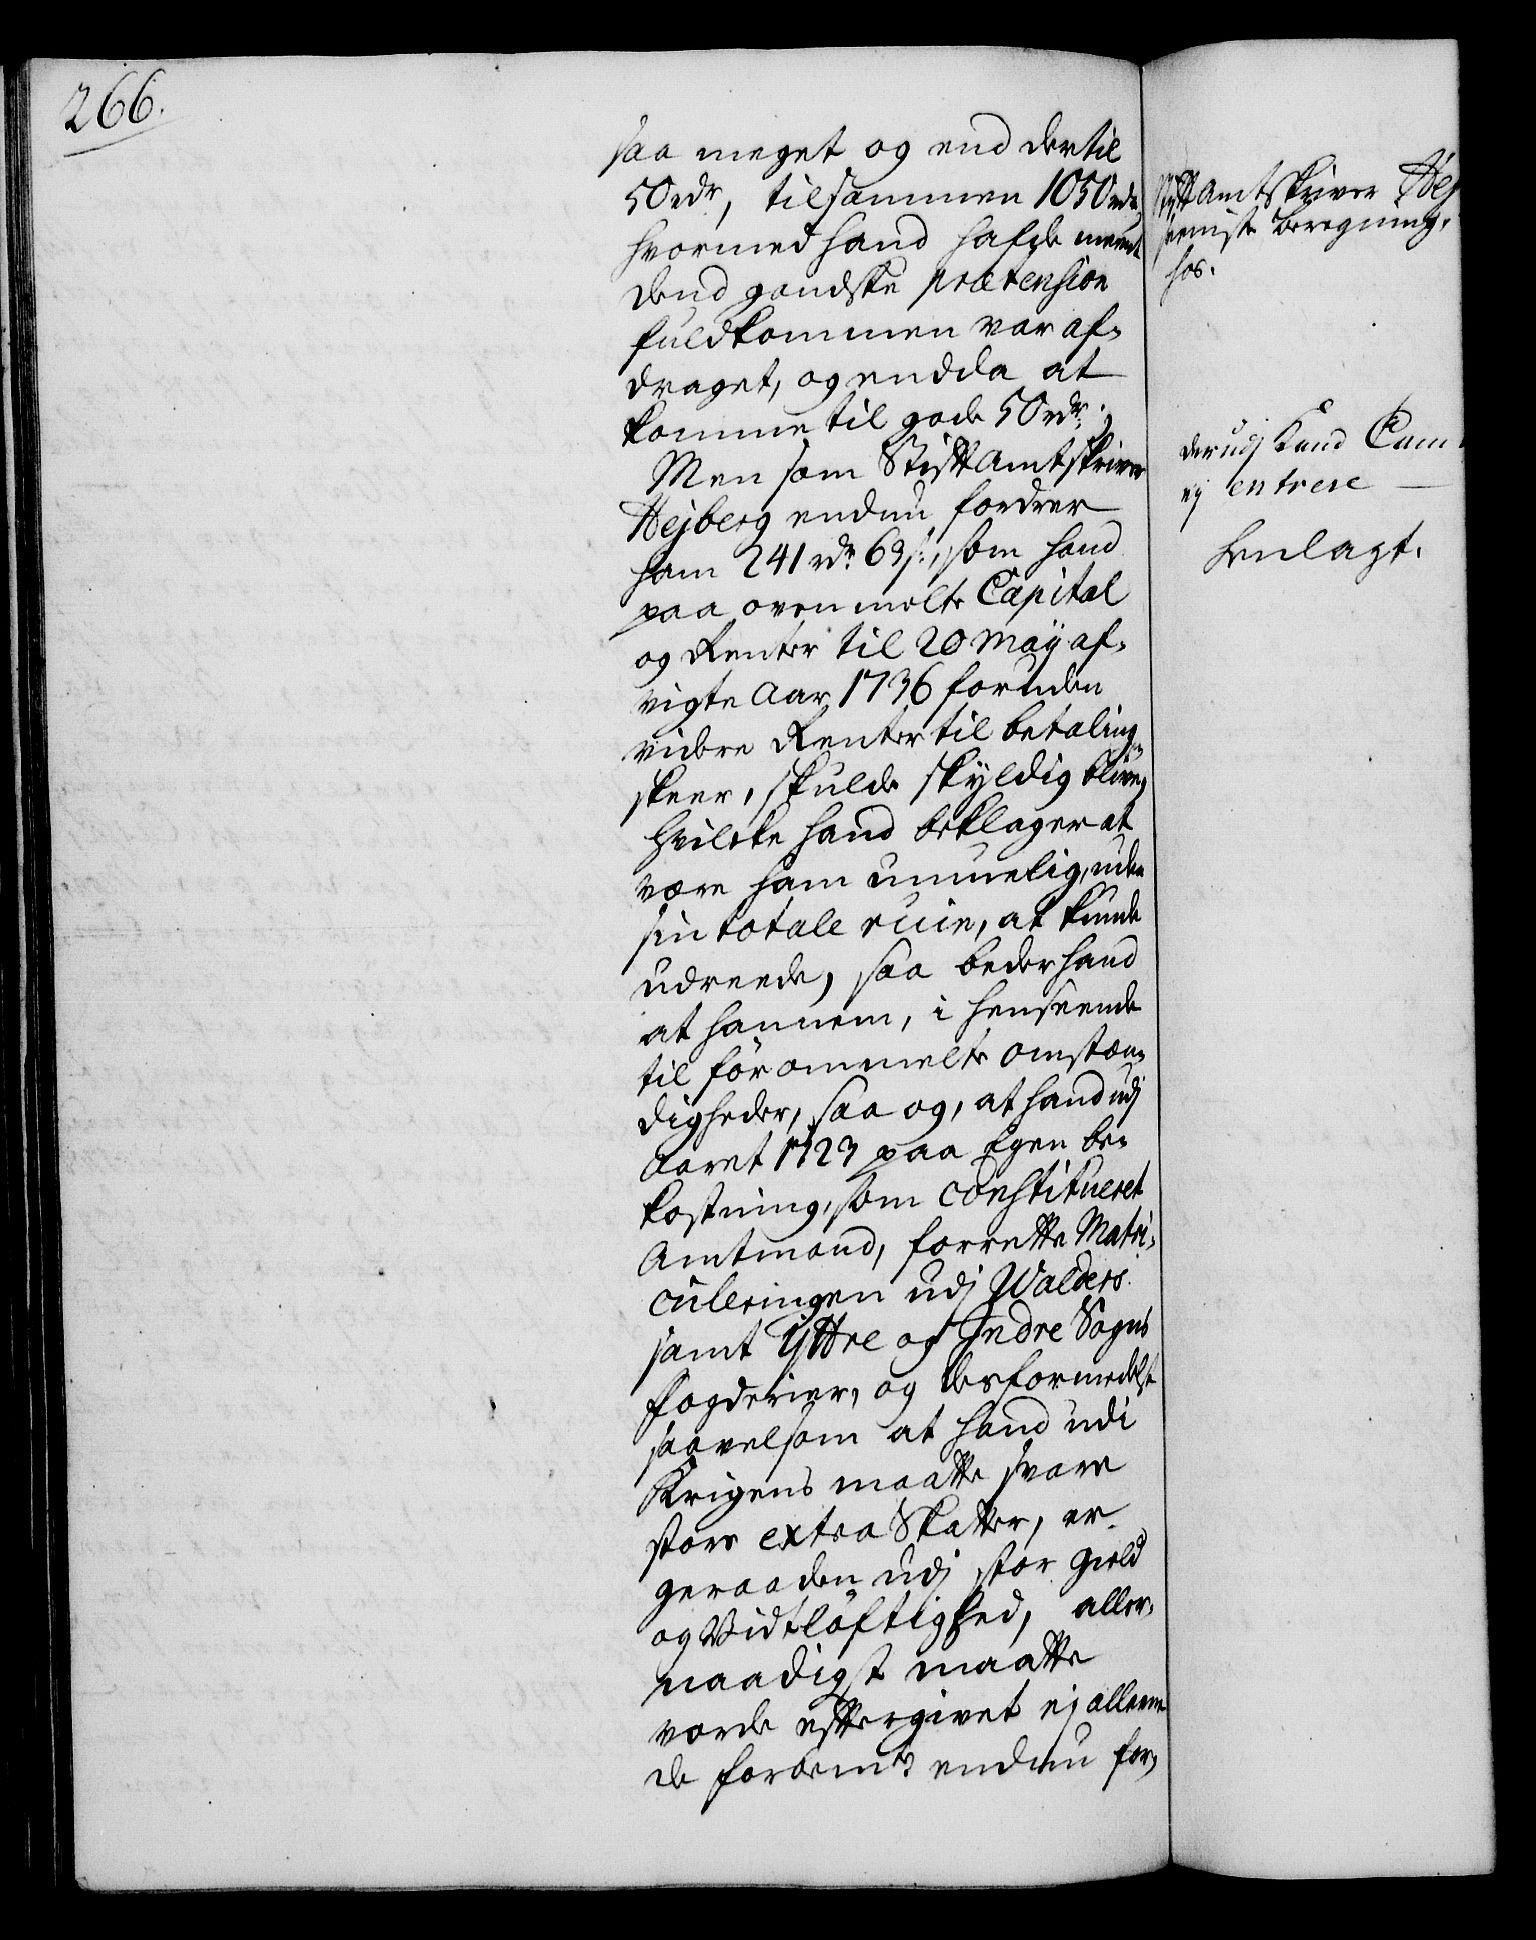 266.
saa meget og end dertil
50 rdr, tilsammen 1050 rdr,
hvormed hand hafde meent
dend gandske prætension
fuldkommen var af-
draget, og endda at
komme til gode 50 rdr.;
Men som Stiftamtskriver
Hejberg endnu fordrer
ham 241 rdr 63 s:, som hand
paa ovenmelte Capital
og Renter til 20 Maÿ af-
vigte Aar 1736 foruden
videre Renter til betaling
skeer, skulde skÿldig blive,
hvilcke hand beklager at
være ham umuelig, uden
sin totale ruin, at kunde
udreede, saa beder hand
at hannem, i henseende
til förommelte omstæn-
digheder, saa og, at hand udj
Aaret 1723 paa Egen be-
kostning, som Constitueret
Amtmand, forrette Matri-
culeringen udj Walders
samt Ÿttre og Indre Sogns
fogderier, og desformedelst
saavelsom at hand udi
Krigens maatte svare
store extra Skatter, er
geraaden udj stor Gield
og Vidtlöftighed, aller-
naadigst maatte
vorde efftergivet ej alleene
de forbemte endnu for-
Stiftamtskriver Hej
beregning,
hos.
derudj Kand Cam
ej entrere —
henlagt.